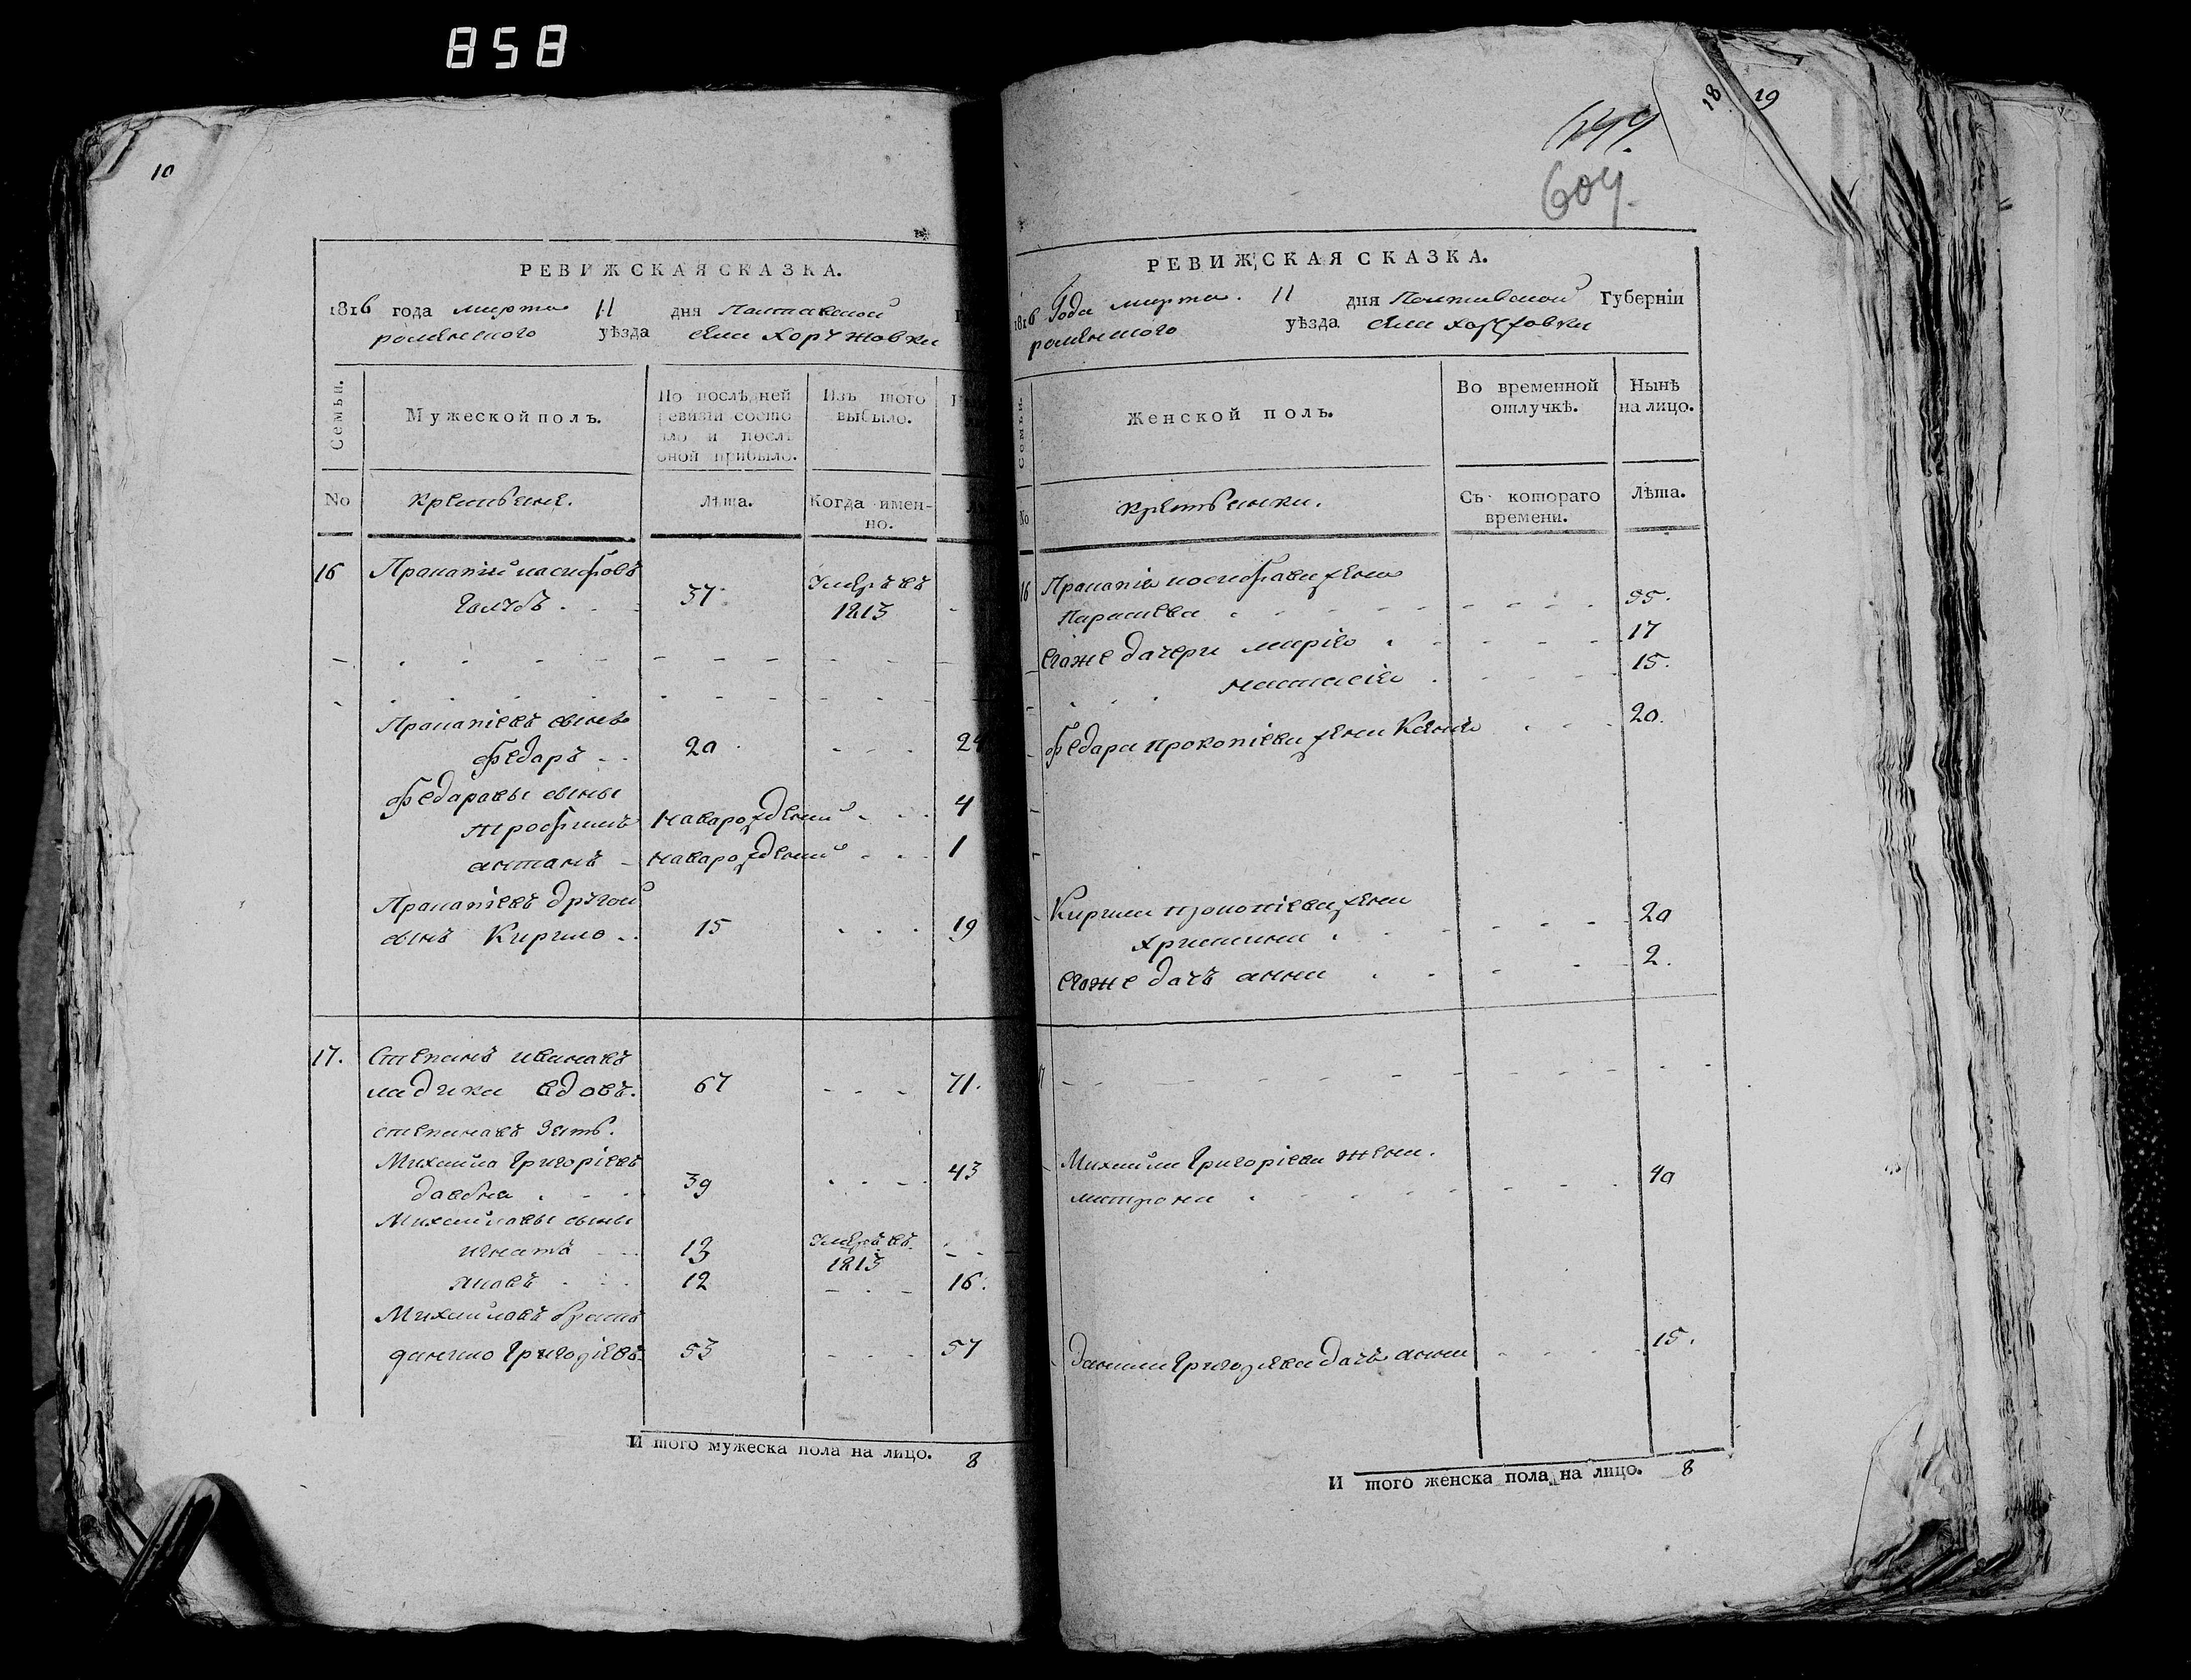 858
10
РЕВИЖСКАЯ СКАЗКА.
1816 года марта 11 дня Полтавской
роменского уѣзда села Хоружовки
Семьи.
Мужеской полъ.
По послѣдней ревизіи состояло и послѣ оной прибыло.
Изъ того выбыло.
No
крестьяне.
Лѣта.
Когда имен-
но.
16 Прокопій иосифовъ
голубъ 37 Умеръ въ 1813
Прокопіевъ сынъ
федоръ 20 24
федоровы сыны
трофимъ новорожденній 4
антонъ новорожденній 1
Прокопіевъ другой
сынъ Кирило 15 19
17. Степанъ ивановъ
ладика вдовъ. 67 71.
степановъ зять.
Михайло григоріевъ
39 43
Михайловы сыны
игнатъ 13 Умеръ въ 1813
яковъ 12 16.
Михайловъ братъ
данило григоріевъ 53 57
И того мужеска пола на лицо. 8
18 19
604.
РЕВИЖСКАЯ СКАЗКА.
1816 Года марта. 11 дня Полтавской Губерніи
роменского уѣзда села хоружовки
Семьи.
Женской полъ.
Во временной отлучкѣ.
Нынѣ на лицо.
No
крестьянки.
Съ котораго времени.
Лѣта.
16 Прокопія иосифова жена
Параскева 55.
егоже дочери марія 17
настасія 15.
федора прокопіева жена Ксенія 20.
Кирила прокопіева жена
христина 20
егоже дочъ анна 2.
Михайла григоріева жена.
матрона 40
данила григоріева дочъ анна 15.
И того женска пола на лицо. 8